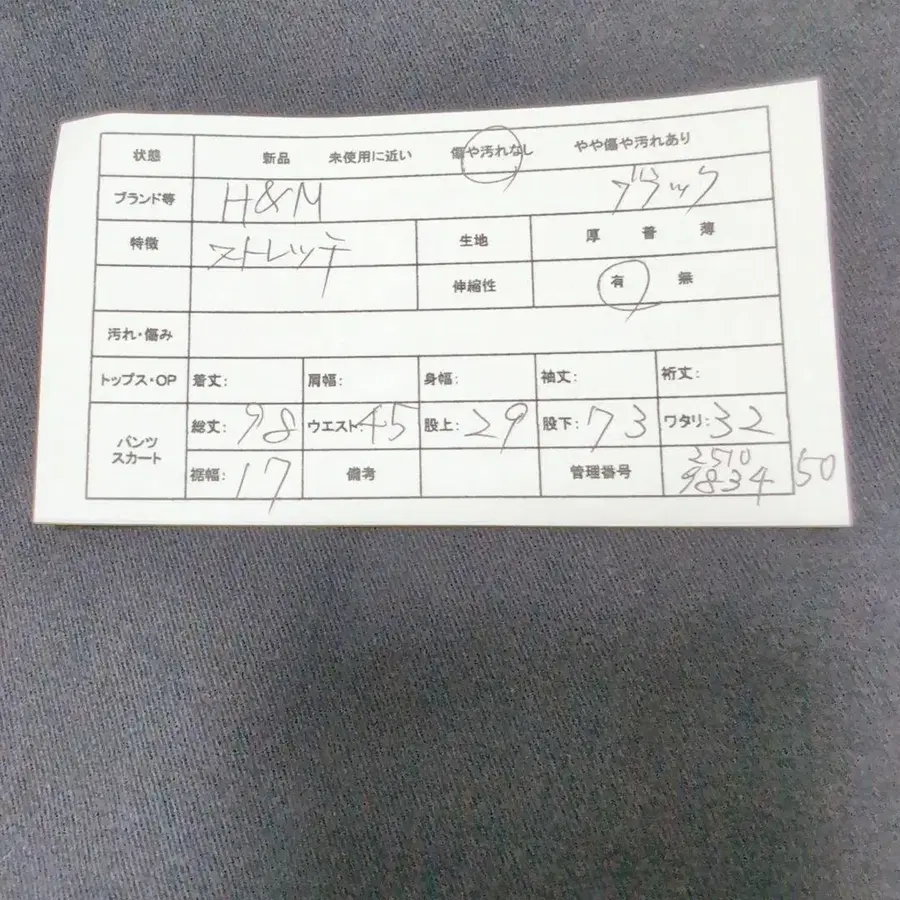 状態 新品 未使用に近い 傷や汚れなし やや傷や汚れあり
ブランド等 H&M ブラック
特徴 ストレッチ 生地 厚 普 薄
伸縮性 有 無
汚れ・傷み
トップス・OP 着丈: 肩幅: 身幅: 袖丈: 裄丈:
パンツ
スカート
総丈: 98 ウエスト: 45 股上: 29 股下: 73 ワタリ: 32
裾幅: 17 備考 管理番号 2510
9834 50